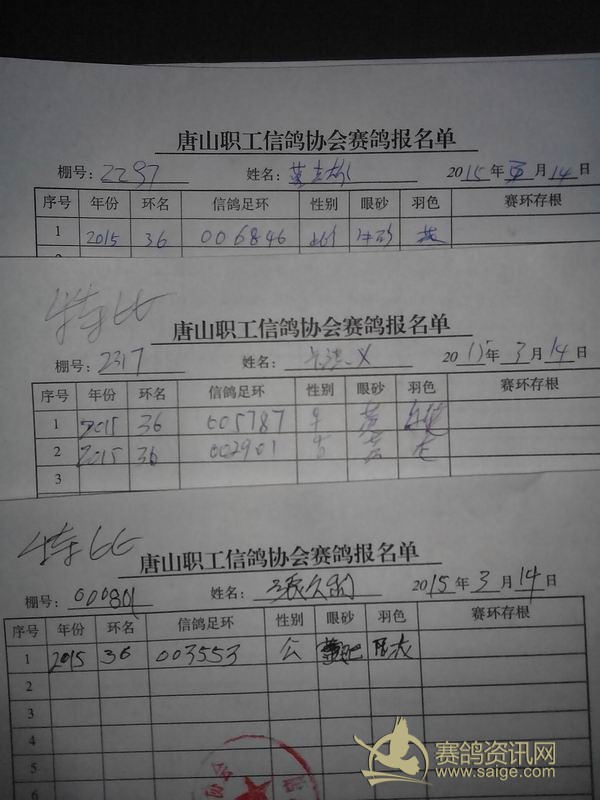 唐山职工信鸽协会赛鸽报名单
棚号: 2297 姓名: 2015年 月14日
序号 年份 环名 信鸽足环 性别 眼砂 羽色 赛环存根
1 2015 36 006846
特比
唐山职工信鸽协会赛鸽报名单
棚号: 2317 姓名: 2015年3月14日
序号 年份 环名 信鸽足环 性别 眼砂 羽色 赛环存根
1 2015 36 005787 黄
2 2015 36 002901 黄
3
特比
唐山职工信鸽协会赛鸽报名单
棚号: 000801 姓名: 张久
2015年3月14日
序号 年份 环名 信鸽足环 性别 眼砂 羽色 赛环存根
1 2015 36 003553 公
2
3
4
5
6
赛鸽资讯网
www.saige.com